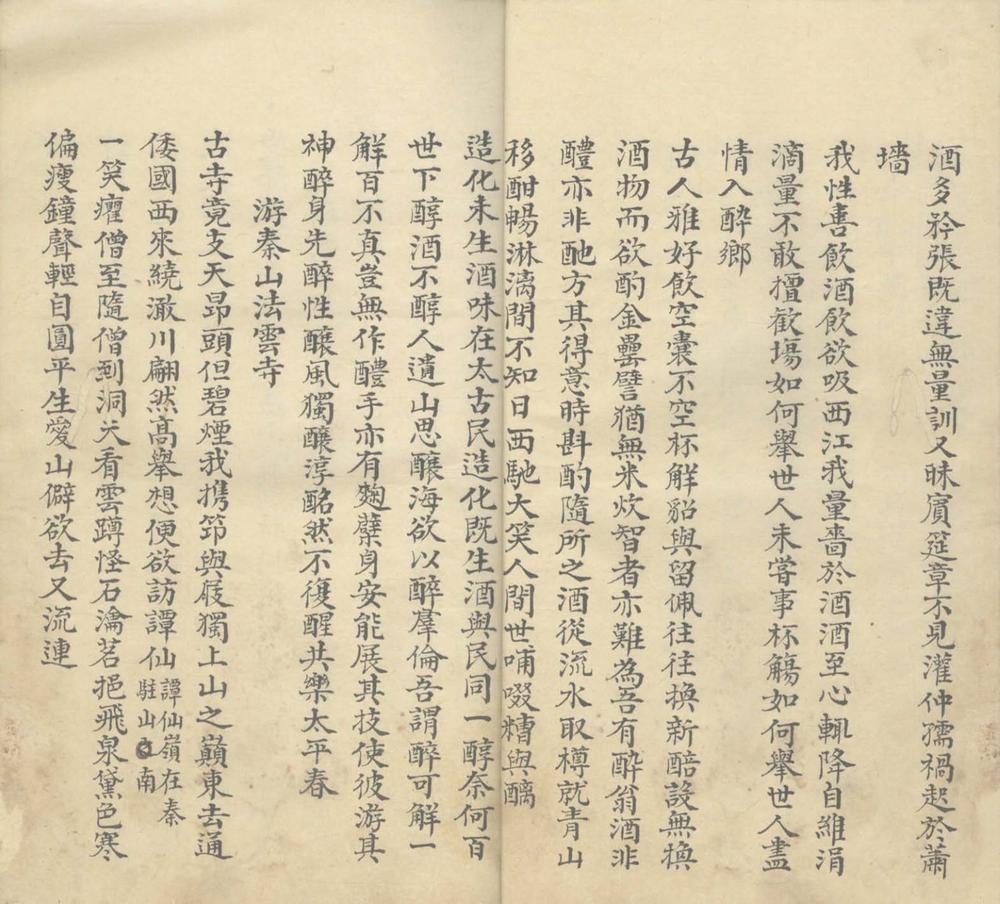 酒多矜張既違無量訓又昧賓筵章不見灌仲孺禍起於蕭
墻
我性善飲酒飲欲吸西江我量嗇於酒酒至心輒降自維涓
滴量不敢擅歡塲如何舉世人未嘗事杯觴如何舉世人盡
情入醉鄉
古人雅好飲空囊不空杯解貂與留佩往往換新醅設無換
酒物而欲酌金罍譬猶無米炊智者亦難為吾有醉翁酒非
醴亦非酏方其得意時斟酌隨所之酒從流水取樽就青山
移酣暢淋漓間不知日西馳大笑人間世哺啜糟與醨
造化未生酒味在太古民造化既生酒與民同一醇奈何百
世下醇酒不醇人遺山思釀海欲以醉羣倫吾謂醉可解一
解百不真豈無作醴手亦有麴蘖身安能展其技使彼游其
神醉身先醉性釀風獨釀淳酩然不復醒共樂太平春
游秦山法雲寺
古寺竟支天昂頭但碧煙我携笻與屐獨上山之巔東去通
倭國西來繞澉川翩然高舉想便欲訪譚仙譚仙嶺在秦
駐山南
一笑癯僧至隨僧到洞天看雲蹲怪石瀹茗挹飛泉黛色寒
偏瘦鐘聲輕自圓平生愛山僻欲去又流連